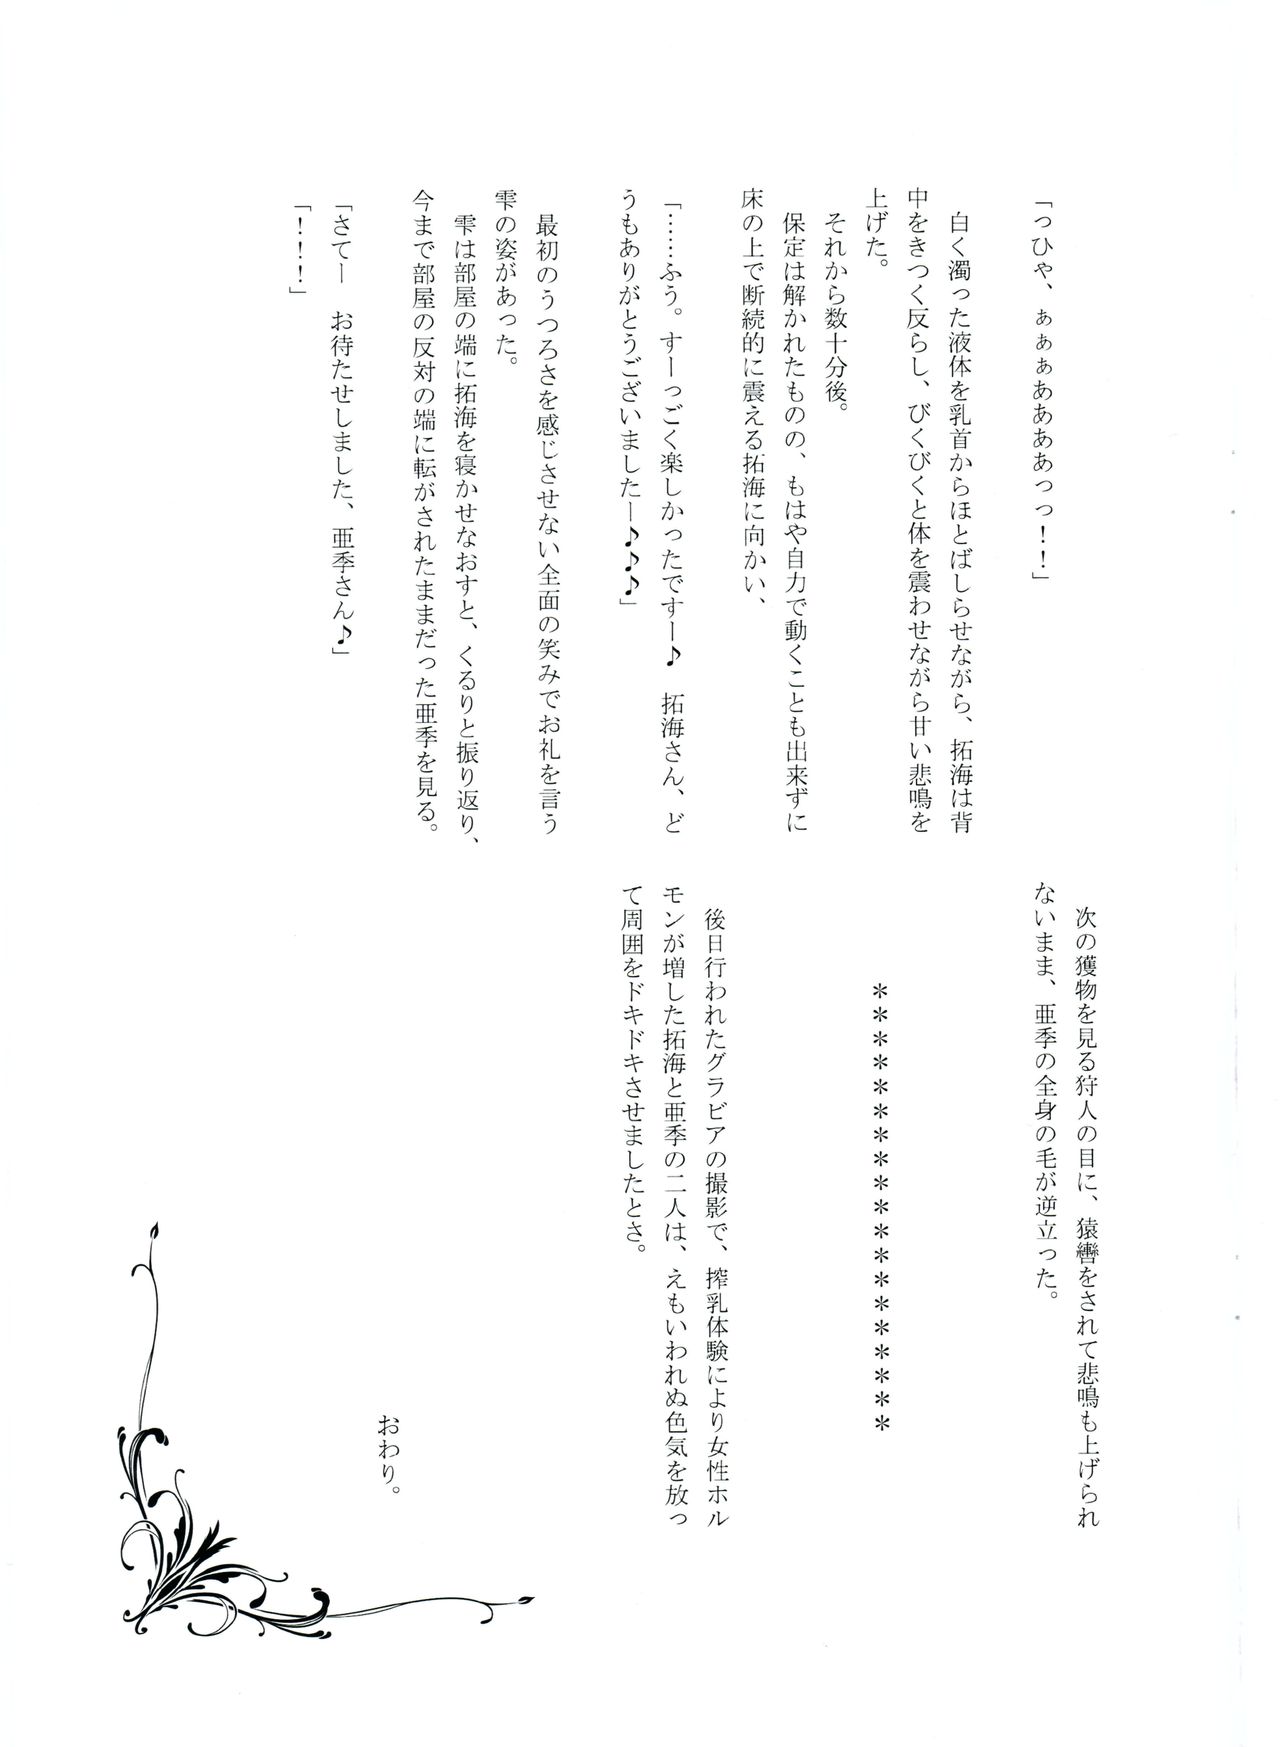 「っひゃ、ぁぁぁああああっっ！！」
　白く濁った液体を乳首からほとばしらせながら、拓海は背
中をきつく反らし、びくびくと体を震わせながら甘い悲鳴を
上げた。
　それから数十分後。
　保定は解かれたものの、もはや自力で動くことも出来ずに
床の上で断続的に震える拓海に向かい、
「……ふう。すーっごく楽しかったですー♪　拓海さん、ど
うもありがとうございましたー♪♪♪」
　最初のうつろさを感じさせない全面の笑みでお礼を言う
雫の姿があった。
　雫は部屋の端に拓海を寝かせなおすと、くるりと振り返り、
今まで部屋の反対の端に転がされたままだった亜季を見る。
「さてー　お待たせしました、亜季さん♪」
「！！！」
　次の獲物を見る狩人の目に、猿轡をされて悲鳴も上げられ
ないまま、亜季の全身の毛が逆立った。
＊＊＊＊＊＊＊＊＊＊＊＊＊＊＊＊＊＊＊
　後日行われたグラビアの撮影で、搾乳体験により女性ホル
モンが増した拓海と亜季の二人は、えもいわれぬ色気を放っ
て周囲をドキドキさせましたとさ。
おわり。